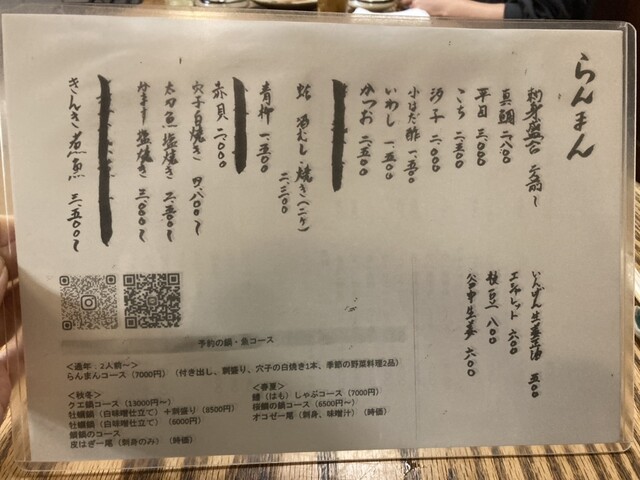 らんまん
刺身盛合 二人前〜
真鯛 二、八〇〇
平目 三、〇〇〇
こち 二、五〇〇
汐子 二、〇〇〇
小はだ酢 一、五〇〇
いわし 一、五〇〇
かつお 二、五〇〇
蛤 酒むし・焼き(二ケ) 二、二〇〇
青柳 一、五〇〇
赤貝 二、〇〇〇
穴子白焼き 四、八〇〇〜
太刀魚塩焼き 二、五〇〇〜
塩焼き 三、〇〇〇〜
きんき煮魚 三、五〇〇〜
いんげん生姜正油 五〇〇
エシャレット 六〇〇
枝豆 八〇〇
谷中生姜 六〇〇
予約の鍋・魚コース
<通年:2人前〜>
らんまんコース(7000円)(付き出し、刺盛り、穴子の白焼き1本、季節の野菜料理2品)
<秋冬>
クエ鍋コース(13000円〜)
牡蠣鍋(白味噌仕立て)+刺盛り(8500円)
牡蠣鍋(白味噌仕立て)(6000円)
鍋のコース
皮はぎ一尾(刺身のみ)(時価)
<春夏>
鱧(はも)しゃぶコース(7000円)
桜鯛の鍋コース(6500円〜)
オコゼ一尾(刺身、味噌汁)(時価)